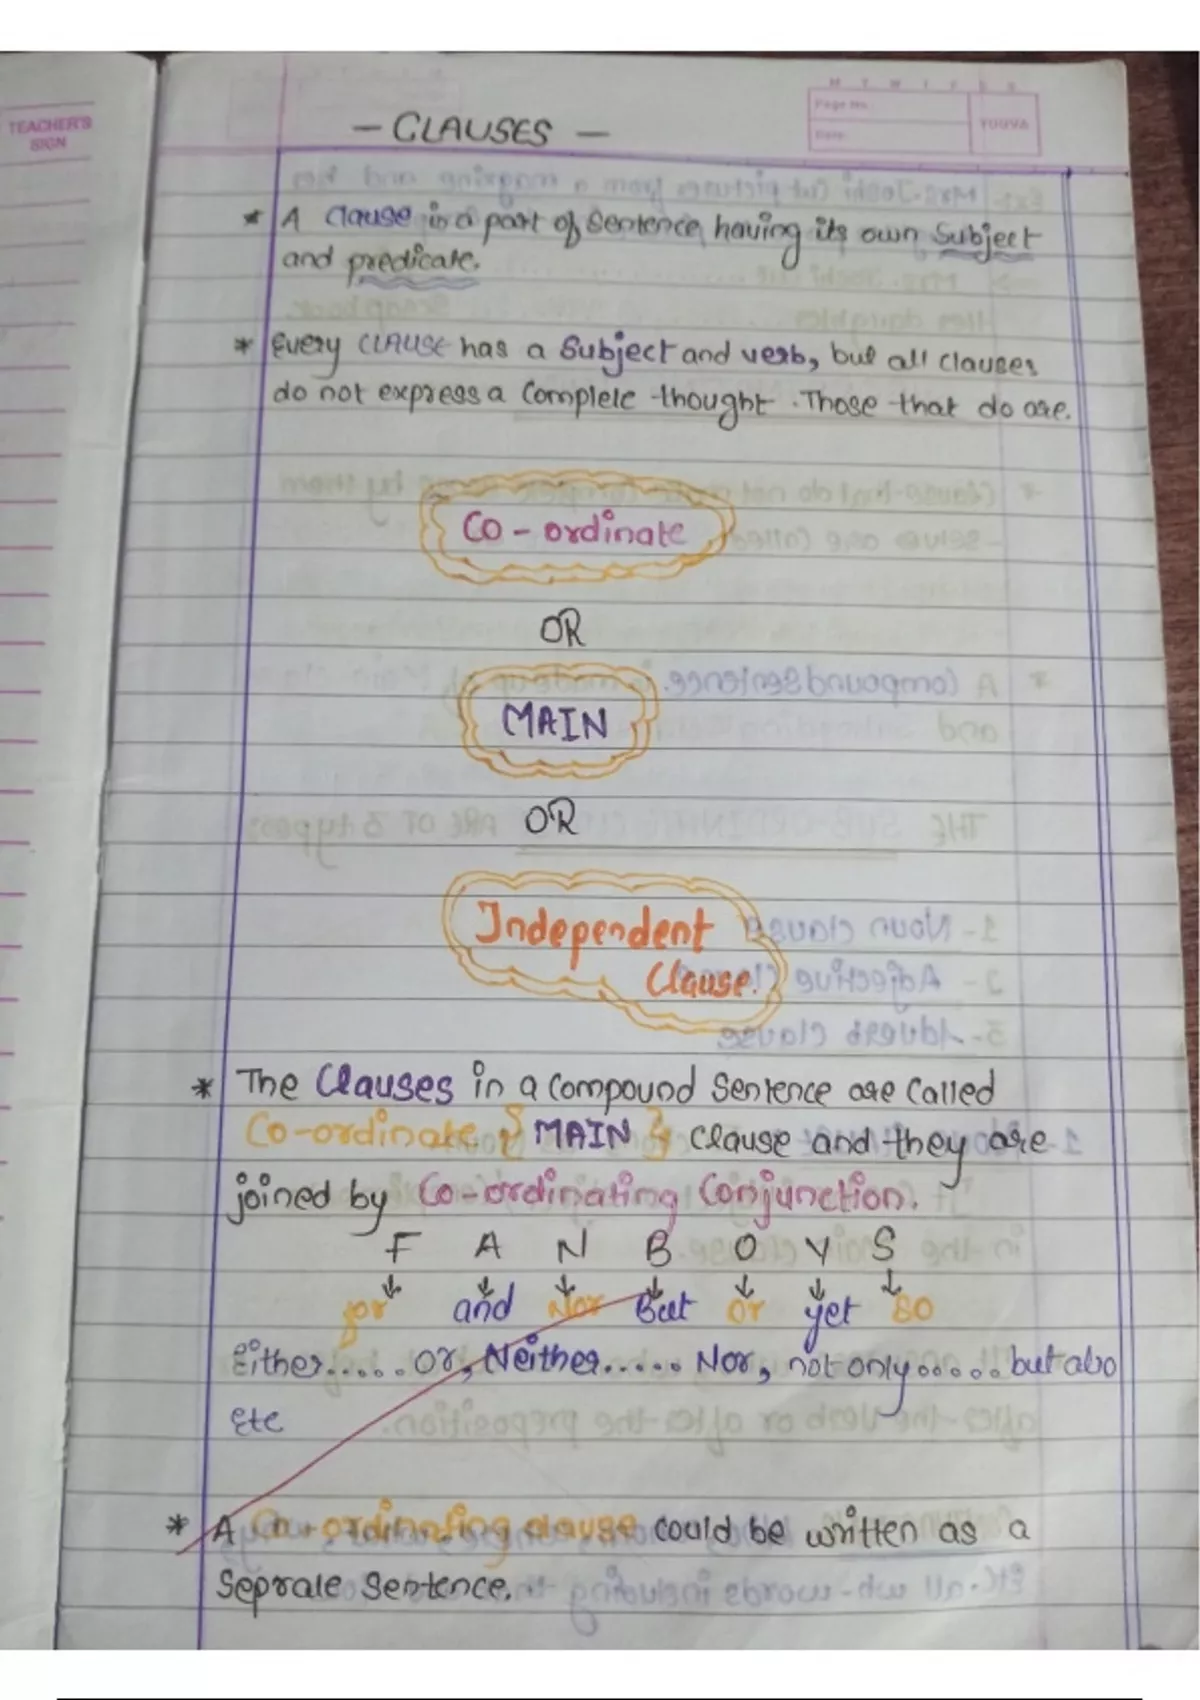 TEACHER'S
SIGN
M T W T F S S
Page No.
Date
YOUVA
– CLAUSES –
* A Clause is a part of Sentence having its own Subject
and predicate.
* Every CLAUSE has a Subject and verb, but all clauses
do not express a Complete thought. Those that do are.
Co-ordinate
OR
MAIN
OR
Independent
Clause.
* The Clauses in a Compound Sentence are Called
Co-ordinate {MAIN} Clause and they are
joined by Co-ordinating Conjunction.
F A N B O Y S
↓ ↓ ↓ ↓ ↓ ↓ ↓
for and Nor But or yet so
Either..... Or, Neither..... Nor, not only..... but also
Etc
* A Co-ordinating clause could be written as a
Seprate Sentence.